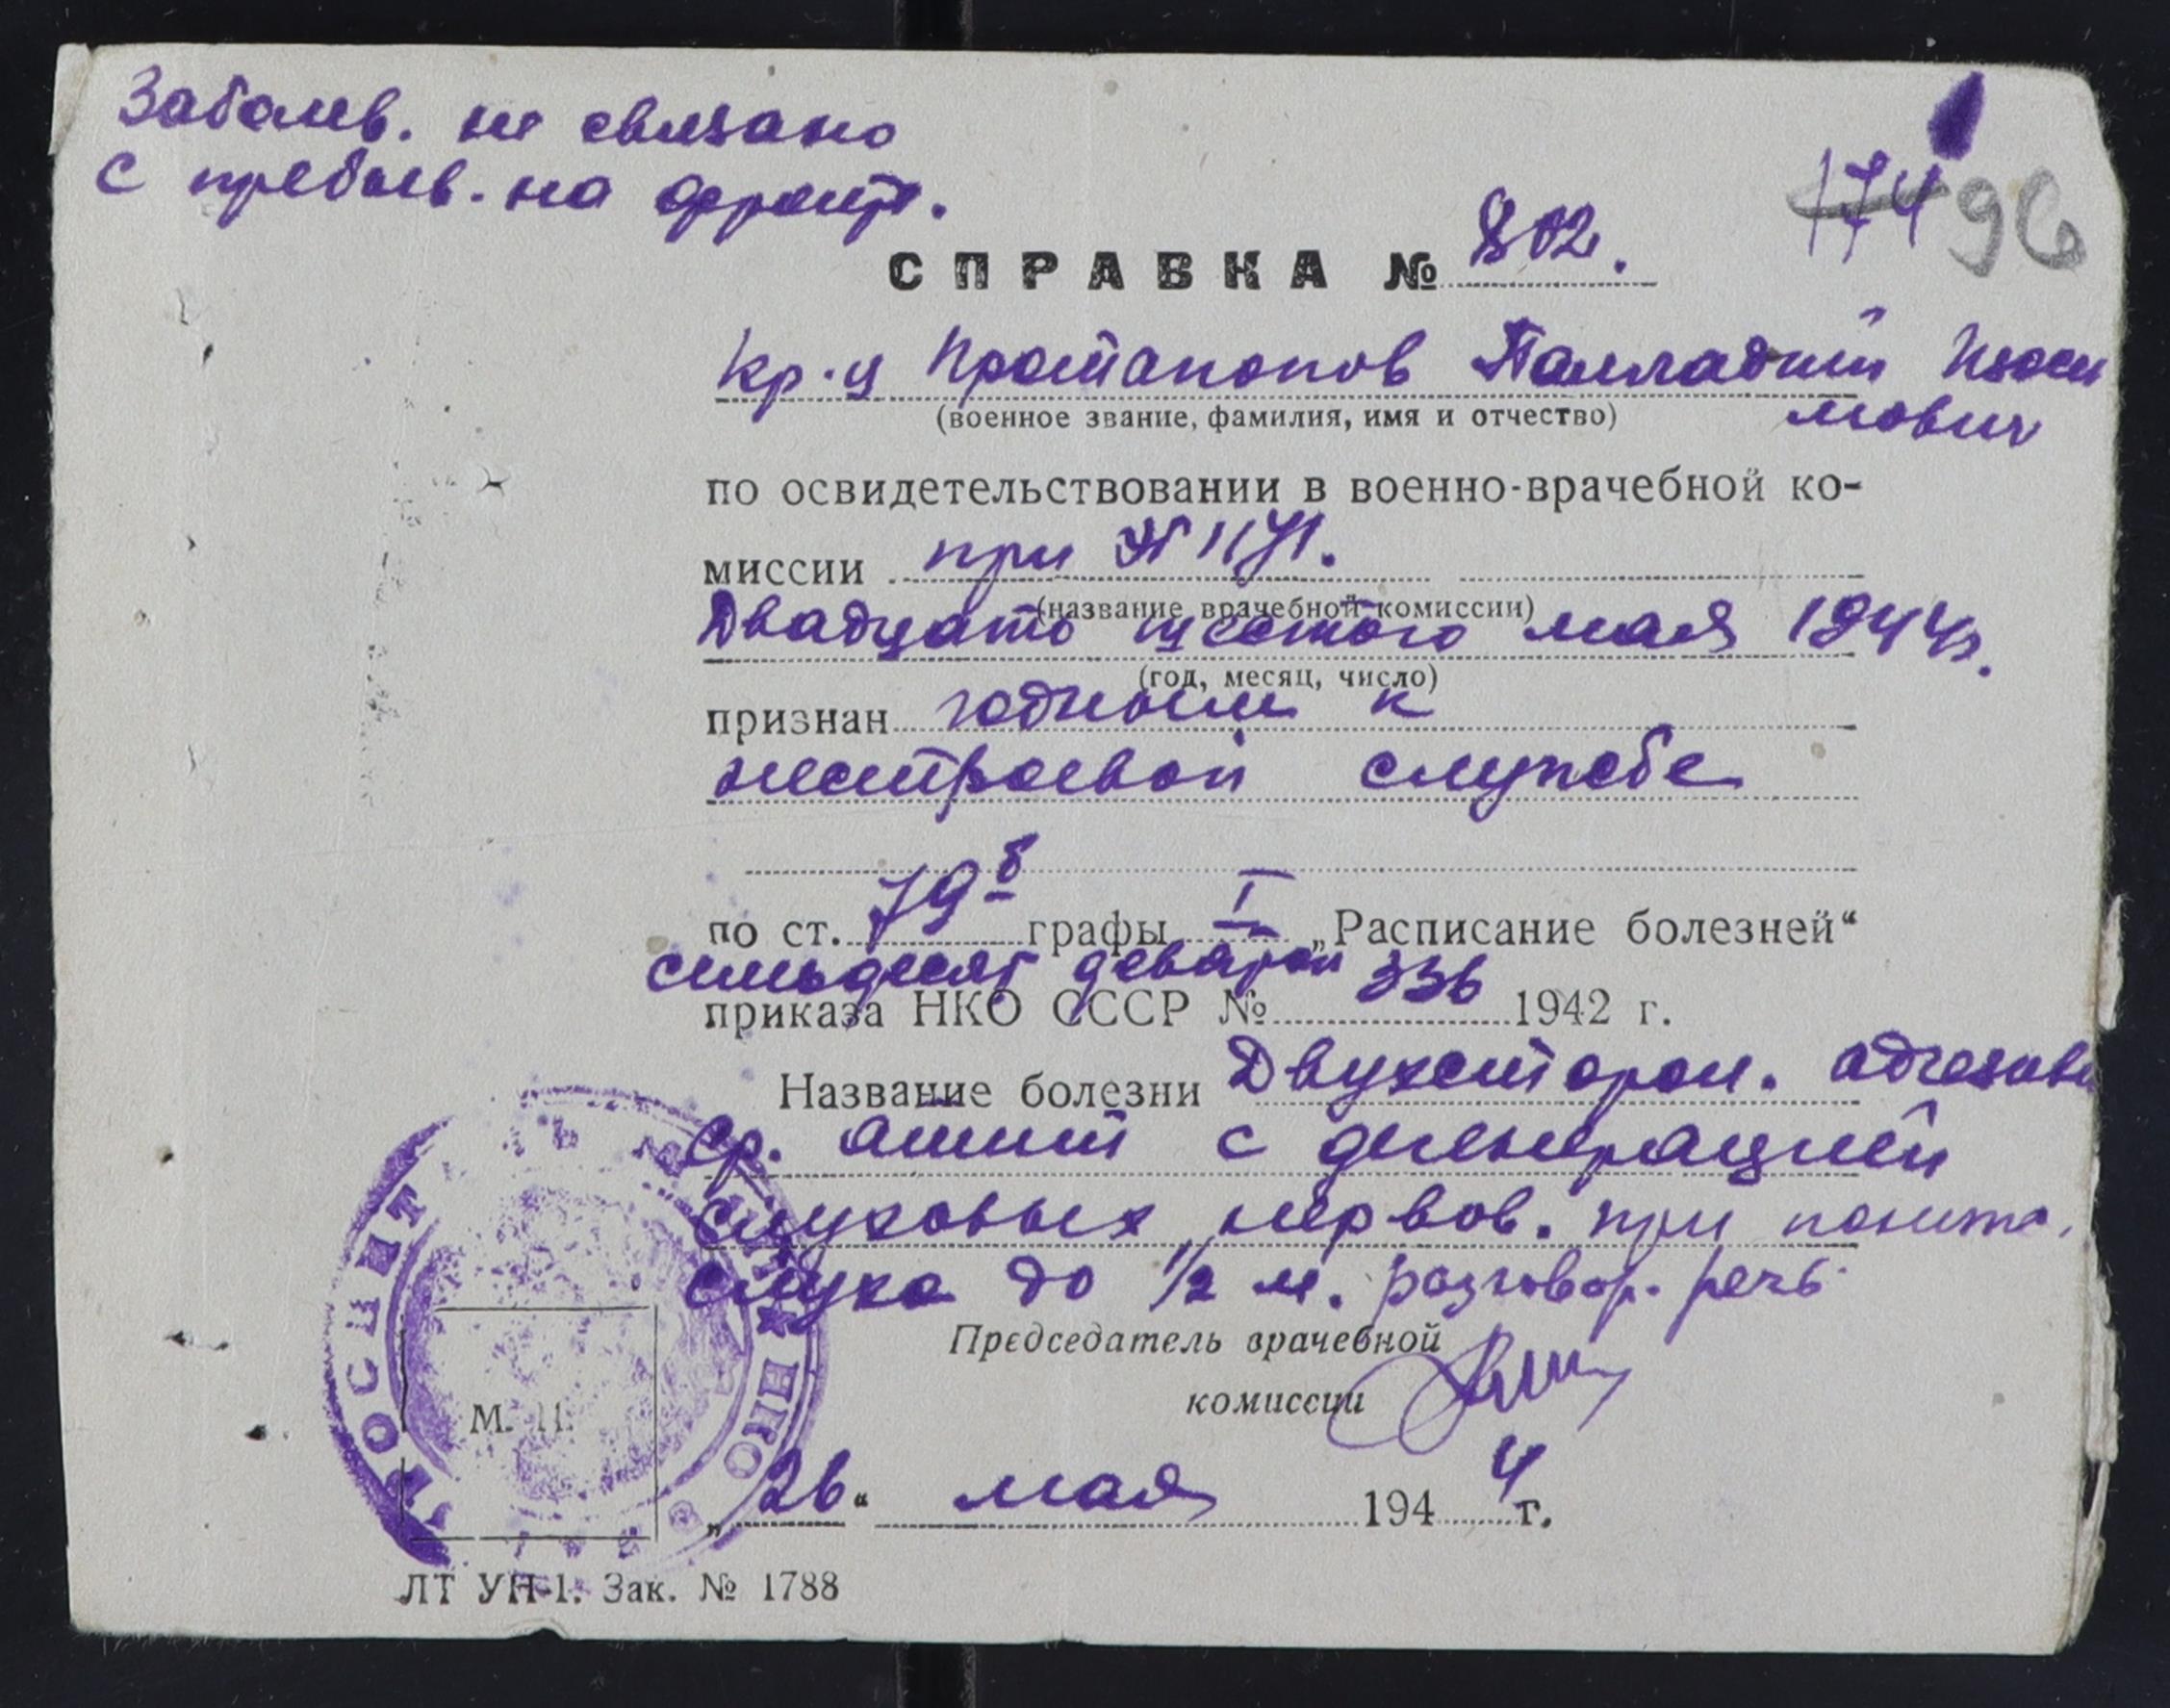 Заболев. не связано
с пребыв. на фронте.
174 96
СПРАВКА № 802.
кр-ц Протапопов Палладий Изоси
мович
(военное звание, фамилия, имя и отчество)
по освидетельствовании в военно-врачебной ко-
миссии при
(название врачебной комиссии)
Двадцато шестого мая 1944г.
(год, месяц, число)
признан годным к
нестроевой службе
по ст. 79б графы I „Расписание болезней“
семьдесят девятой
приказа НКО СССР № 336 1942 г.
Название болезни Двухсторон. адгезивн
ср. отит с дегенерацией
слуховых нервов. при пониж.
слуха до 1/2 м. разговор. речь
Председатель врачебной
комиссии
М. П.
„26“ мая 1944 г.
НКО
ЛТ УН-1. Зак. № 1788